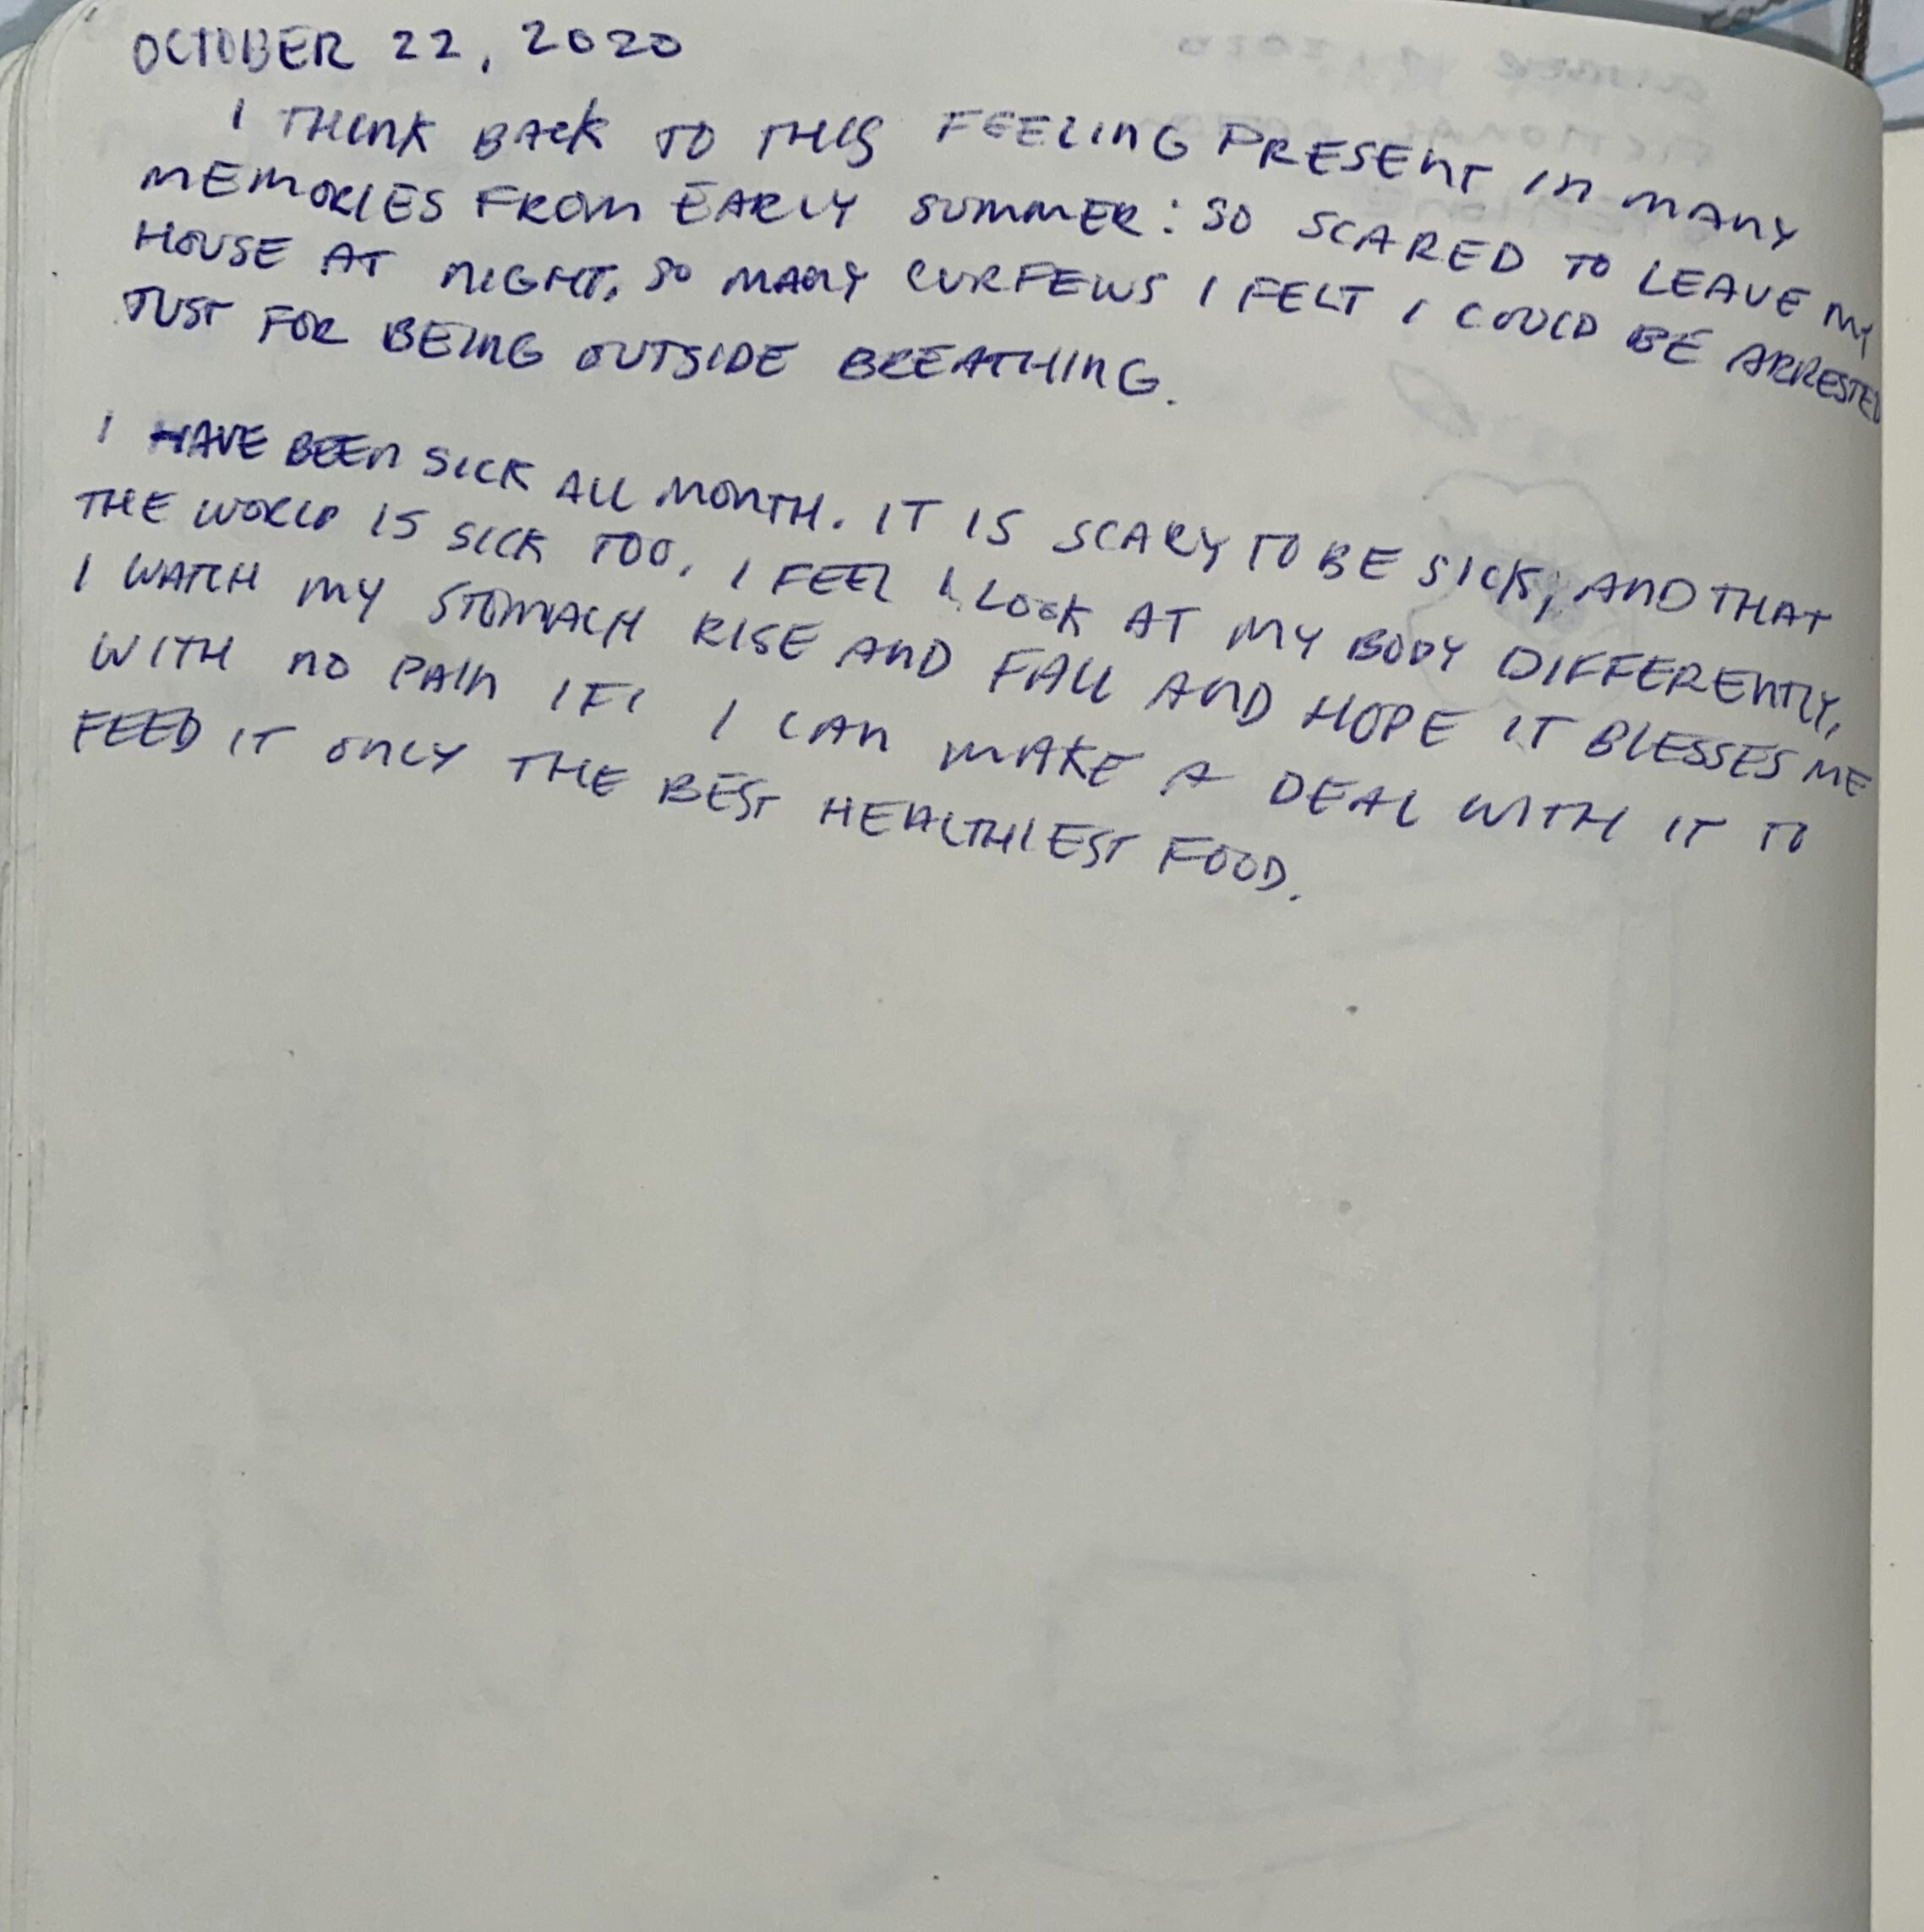 OCTOBER 22, 2020
I THINK BACK TO THIS FEELING PRESENT IN MANY
MEMORIES FROM EARLY SUMMER: SO SCARED TO LEAVE MY
HOUSE AT NIGHT, SO MANY CURFEWS I FELT I COULD BE ARRESTED
JUST FOR BEING OUTSIDE BREATHING.
I HAVE BEEN SICK ALL MONTH. IT IS SCARY TO BE SICK, AND THAT
THE WORLD IS SICK TOO. I FEEL I LOOK AT MY BODY DIFFERENTLY,
I WATCH MY STOMACH RISE AND FALL AND HOPE IT BLESSES ME
WITH NO PAIN IF I I CAN MAKE A DEAL WITH IT TO
FEED IT ONLY THE BEST HEALTHIEST FOOD.